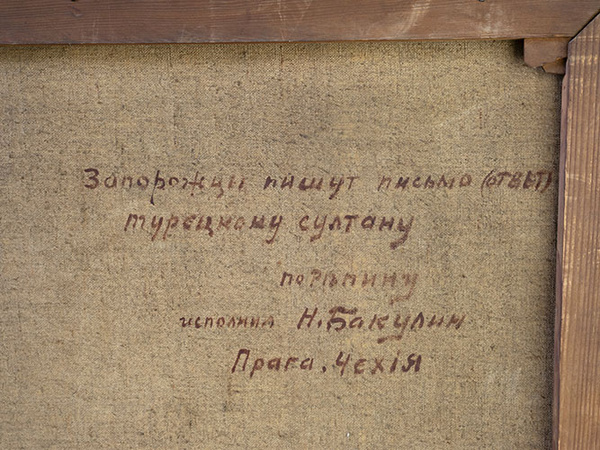 Запорожцы пишут письмо (отвѣт)
турецкому султану
по Рѣпину
исполнил Н. Бакулин
Прага. Чехія